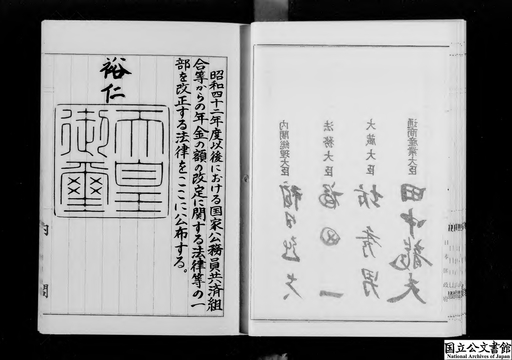 通商産業大臣 田中龍夫
大蔵大臣 坊秀男
法務大臣 福田一
内閣総理大臣
昭和四十二年度以後における国家公務員共済組
合等からの年金の額の改定に関する法律等の一
部を改正する法律をここに公布する。
裕仁
天皇
御璽
内閣
国立公文書館
National Archives of Japan